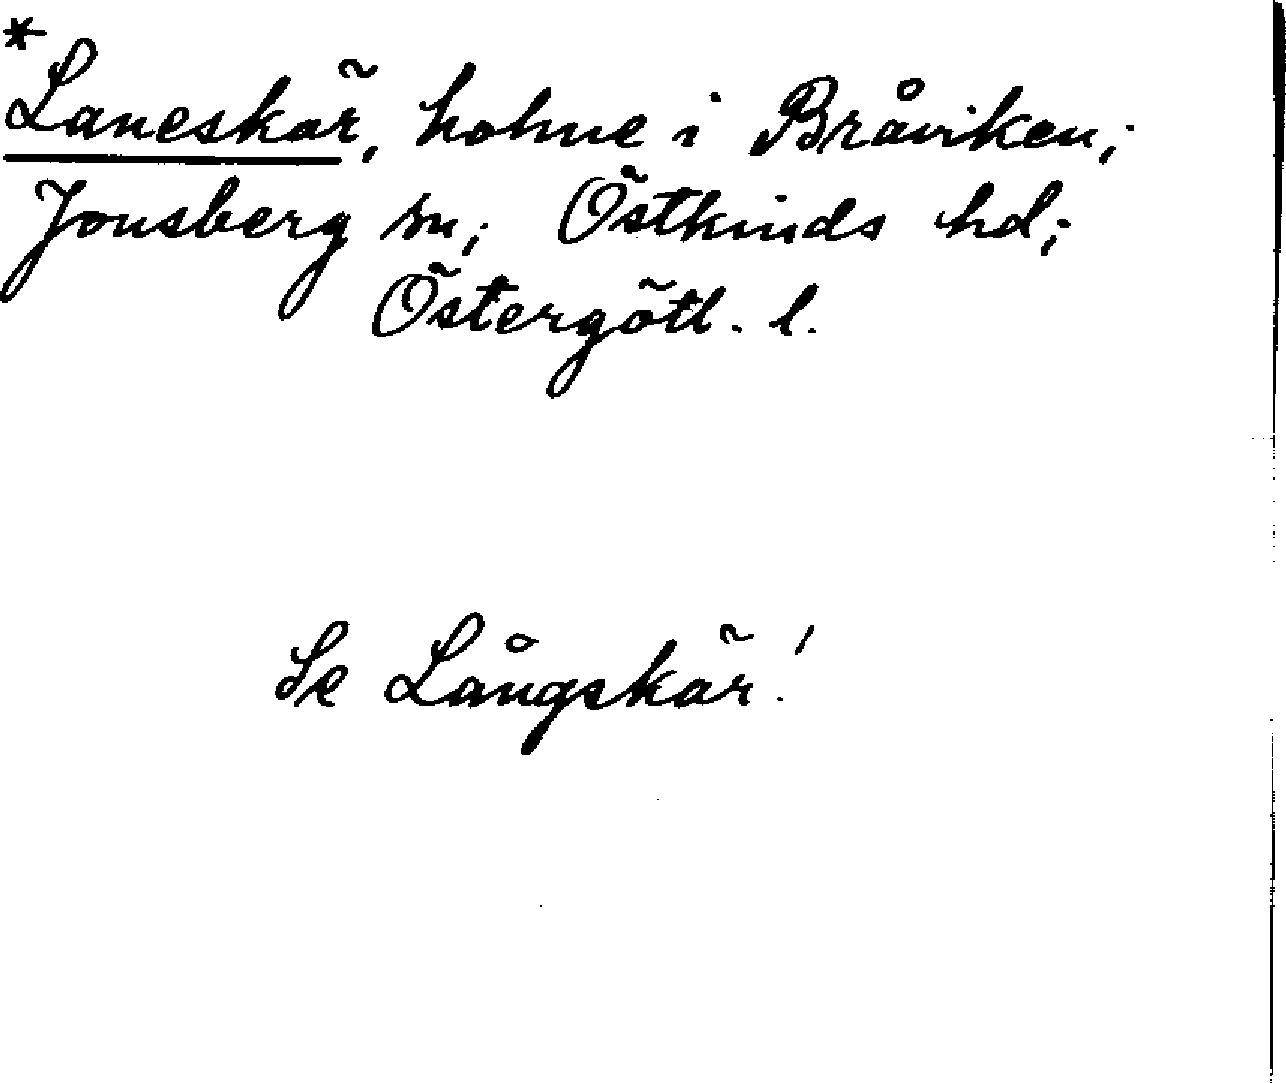 *
Laneskär, holme i Bråviken;
Jonsberg sn; Östkinds hd;
Östergötl. l.
Se Långskär!